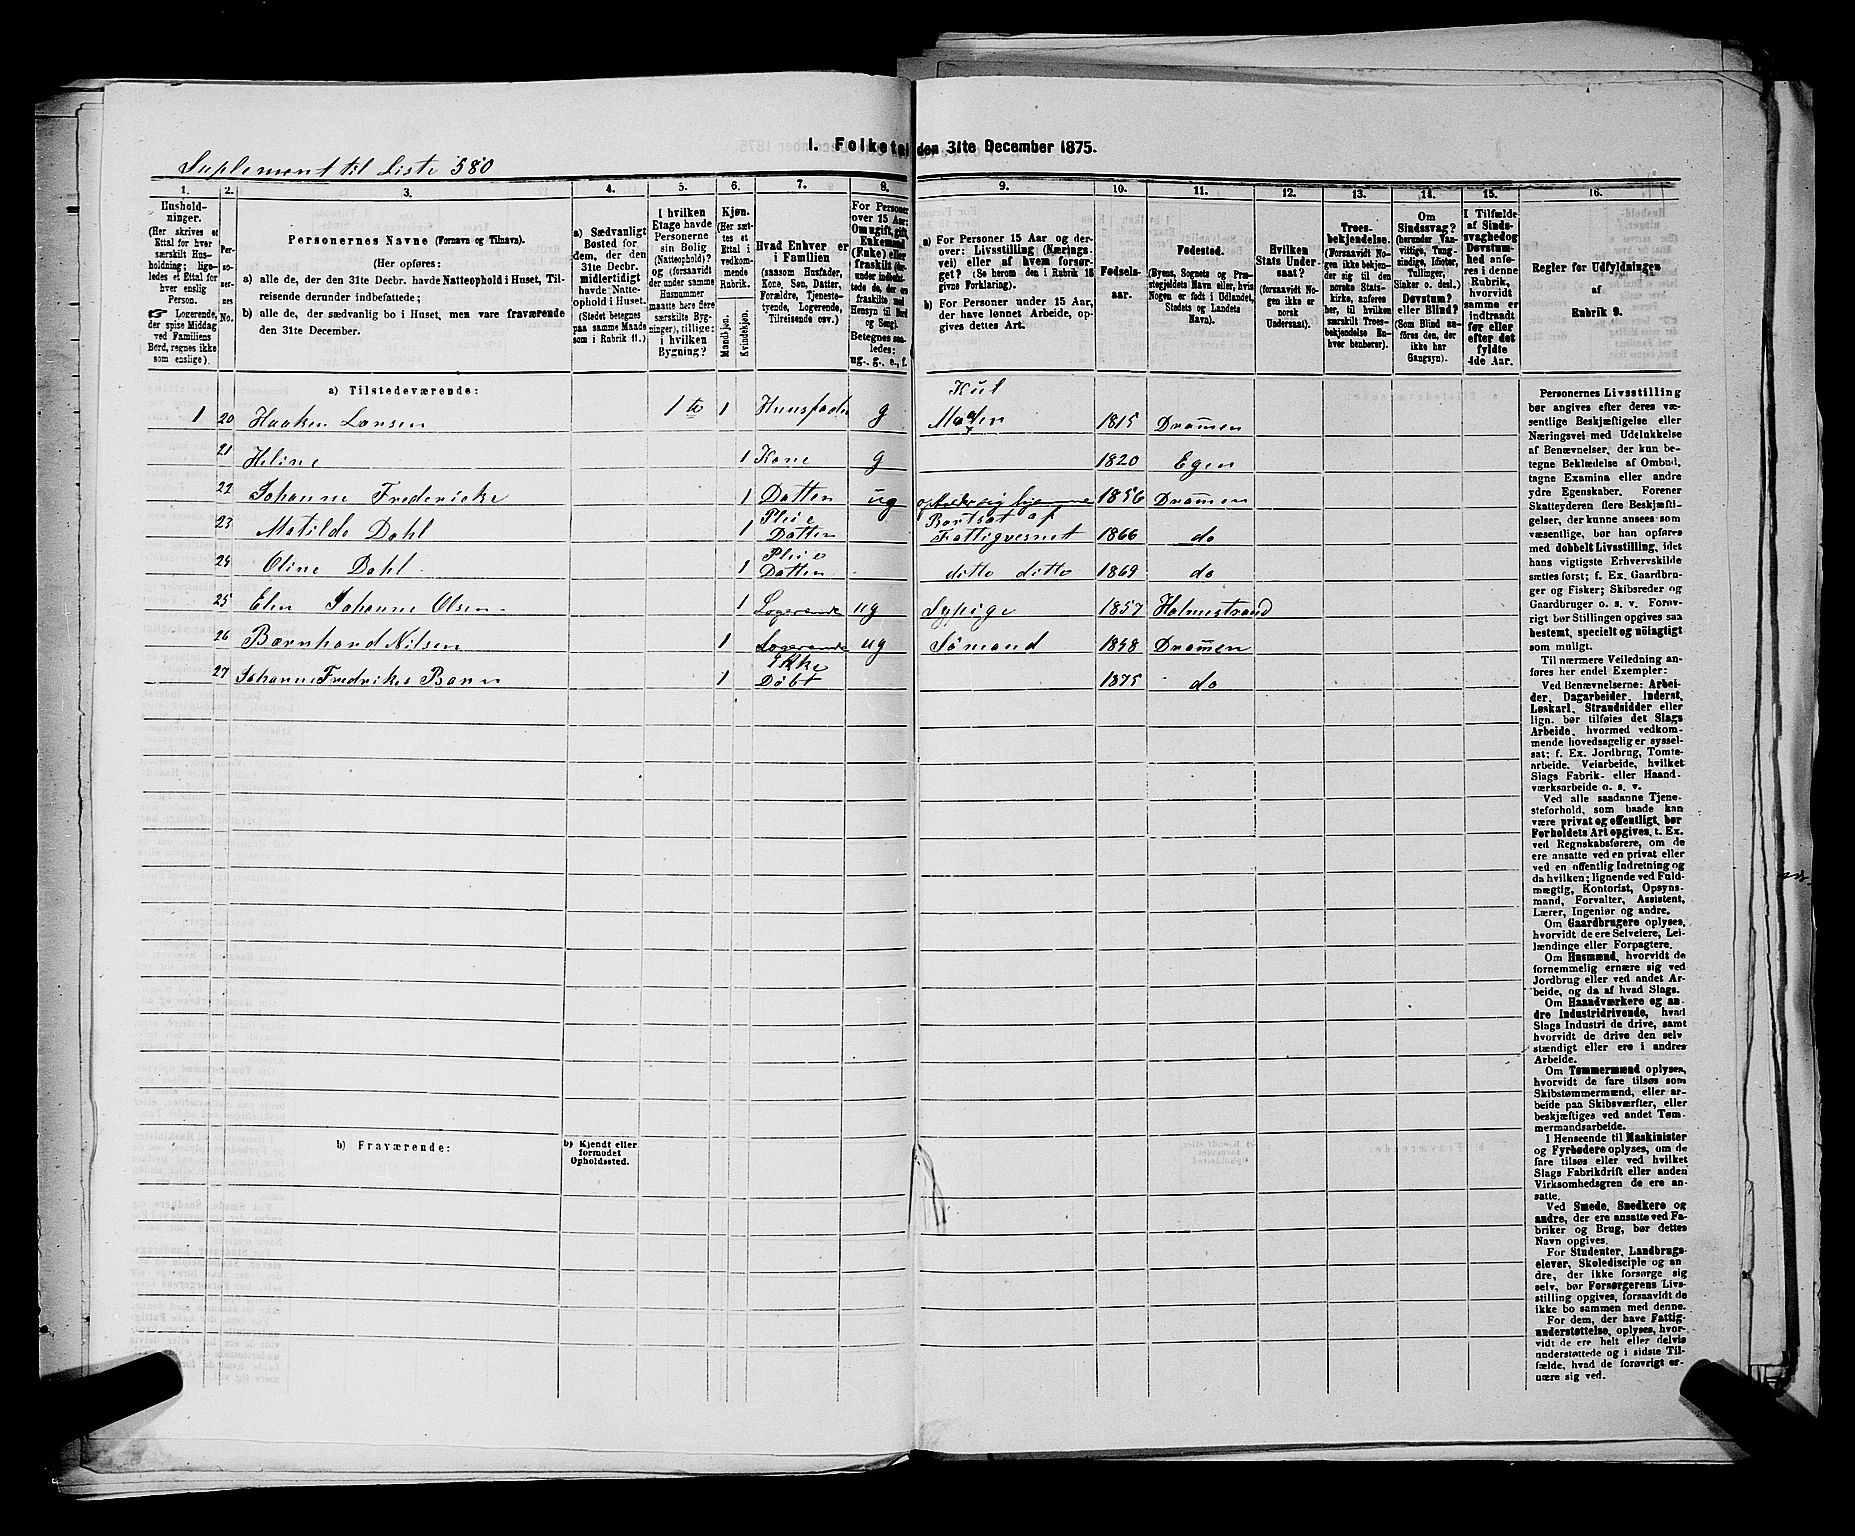 Suplement til Liste 580
1. Folketal den 31te December 1875.
1. 2. 3. 4. 5. 6. 7. 8. 9. 10. 11. 12. 13. 14. 15. 16.
Husholdninger.
(Her skrives et
Ettal for hver
særskilt Husholdning;
ligeledes et Ettal for
hver enslig
Person.
☞ Logerende,
der spise Middag
ved Familiens
Bord, regnes ikke
som enslige).
Personernes
No.
Personernes Navne (Fornavn og Tilnavn).
(Her opføres:
a) alle de, der den 31te Decbr. havde Natteophold i Huset, Tilreisende derunder indbefattede;
b) alle de, der sædvanlig bo i Huset, men vare fraværende
den 31te December.
a) Sædvanligt
Bosted for
dem, der den
31te Decbr.
midlertidigt
havde Natteophold i Huset.
(Stedet betegnes
paa samme Maade
som i Rubrik 11.)
I hvilken
Etage havde
Personerne
sin Bolig
(Natteophold)?
og (forsaavidt
der under samme
Husnummer
maatte høre flere
særskilte Bygninger), tillige:
i hvilken
Bygning?
Kjøn.
(Her sættes et
Ettal i
vedkommende
Rubrik.
Mandkjøn.
Kvindekjøn.
Hvad Enhver er
i Familien
(saasom Husfader,
Kone, Søn, Datter,
Forældre, Tjenestetyende, Logerende,
Tilreisende osv.)
For Personer
over 15 Aar:
Om ugift, gift,
Enkemand
(Enke) eller
fraskilt
Betegnes saaledes:
ug., g., e., f.
a) For Personer 15 Aar og derover: Livsstilling (Næringsvei) eller af hvem forsørget? (Se herom den i Rubrik 16
givne Forklaring).
b) For Personer under 15 Aar,
der have lønnet Arbeide, opgives dettes Art.
Fødselsaar.
Fødested.
(Byens, Sognets og Præstegjeldets Navn eller, hvis
Nogen er født i Udlandet,
Stedets og Landets
Navn).
Hvilken
Stats Undersaat?
(forsaavidt Nogen ikke er
norsk
Undersaat).
Troesbekjendelse.
(Forsaavidt Nogen ikke bekjender sig til den
norske Statskirke, anføres
her, til hvilken
særskilt Troesbekjendelse Enhver henhører).
Om
Sindssvag?
(herunder Vanvittige, Tungsindige, Idioter,
Tullinger,
Sinker o. desl.)
Døvstum?
eller Blind?
(Som Blind anføres den, der
ikke har
Gangsyn).
I Tilfælde
af Sindssvaghed og
Døvstumhed anføres i denne
Rubrik,
hvorvidt
samme er
indtraadt
før eller
efter det
fyldte
4de Aar.
Regler for Udfyldningen
af
Rubrik 9.
a) Tilstedeværende:
1 20 Haaken Larsen 1 te 1 Huusfader g Kul Mager 1815 Drammen
21 Heline 1 Kone g 1820 Eger
22 Johanne Fredericke 1 Datter ug opholder sig hjemme 1856 Drammen
23 Matilde Dahl 1 Pleie Datter Bortsat af Fattigvesnet 1866 do
24 Oline Dahl 1 Pleie Datter ditto ditto 1869 do
25 Elen Johanne Olsen 1 Logerende ug Sypige 1857 Holmestrand
26 Bærnhard Nilsen 1 Logerende ug Sömand 1848 Drammen
27 Johanne Fredrikes Barn 1 Ikke Döbt 1875 do
b) Fraværende:
b) Kjendt eller
formodet
Opholdssted.
Personernes Livsstilling
bør angives efter deres væsentlige Beskjæftigelse eller
Næringsvei med Udelukkelse
af Benævnelser, der kun betegne Beklædelse af Ombud,
tagne Examina eller andre
ydre Egenskaber. Forener
Skatteyderen flere Beskjæftigelser, der kunne ansees som
væsentlige, bør han opføres
med dobbelt Livsstilling, idet
hans vigtigste Erhvervskilde
sættes først; f. Ex. Gaardbruger og Fisker; Skibsreder og
Gaardbruger o. s. v. Forøvrigt bør Stillingen opgives saa
bestemt, specielt og nöiagtigt
som muligt.
Til nærmere Veiledning anføres her endel Exempler:
Ved Benævnelserne: Arbeider, Dagarbeider, Inderst,
Løskarl, Strandsidder eller
lign. bør tilføies det Slags
Arbeide, hvormed vedkommende hovedsagelig er sysselsat; f. Ex. Jordbrug, Tomtearbeide, Veiarbeide, hvilket
Slags Fabrik- eller Haandværksarbeide o. s. v.
Ved alle saadanne Tjenesteforhold, som baade kan
være privat og offentligt, bør
Forholdets Art opgives, t. Ex.
ved Regnskabsførere, om de
ere ansatte ved en privat eller
ved en offentlig Indretning og
da hvilken; lignende ved Fuldmægtig, Kontorist, Opsynsmand, Forvalter, Assistent,
Lærer, Ingeniør og andre.
Om Gaardbrugere oplyses,
hvorvidt de ere Selveiere, Leilændinge eller Forpagtere.
Om Husmænd, hvorvidt de
fornemmelig ernære sig ved
Jordbrug eller ved andet Arbeide, og da af hvad Slags.
Om Haandværkere og andre Industridrivende, hvad
Slags Industri de drive, samt
hvorvidt de drive den selvstændigt eller ere i andres
Arbeide.
Om Tømmermænd oplyses,
hvorvidt de fare tilsøs som
Skibstømmermænd, eller arbeide paa Skibsværfter, eller
beskjæftiges ved andet Tømmermandsarbeide.
I Henseende til Maskinister
og Fyrbødere oplyses, om de
fare tilsøs eller ved hvilket
Slags Fabrikdrift eller anden
Virksomhedsgren de ere ansatte.
Ved Smede, Snedkere og
andre, der ere ansatte ved Fabriker og Brug, bør dettes
Navn opgives.
For Studenter, Landbrugselever, Skoledisciple og andre, der ikke forsørge sig
selv, bør Forsørgerens Livsstilling opgives, forsaavidt de
ikke bo sammen med denne.
For dem, der have Fattigunderstøttelse, oplyses, hvorvidt de ere helt eller delvis
understøttede og i sidste Tilfælde, hvad de forøvrigt ernære sig ved.